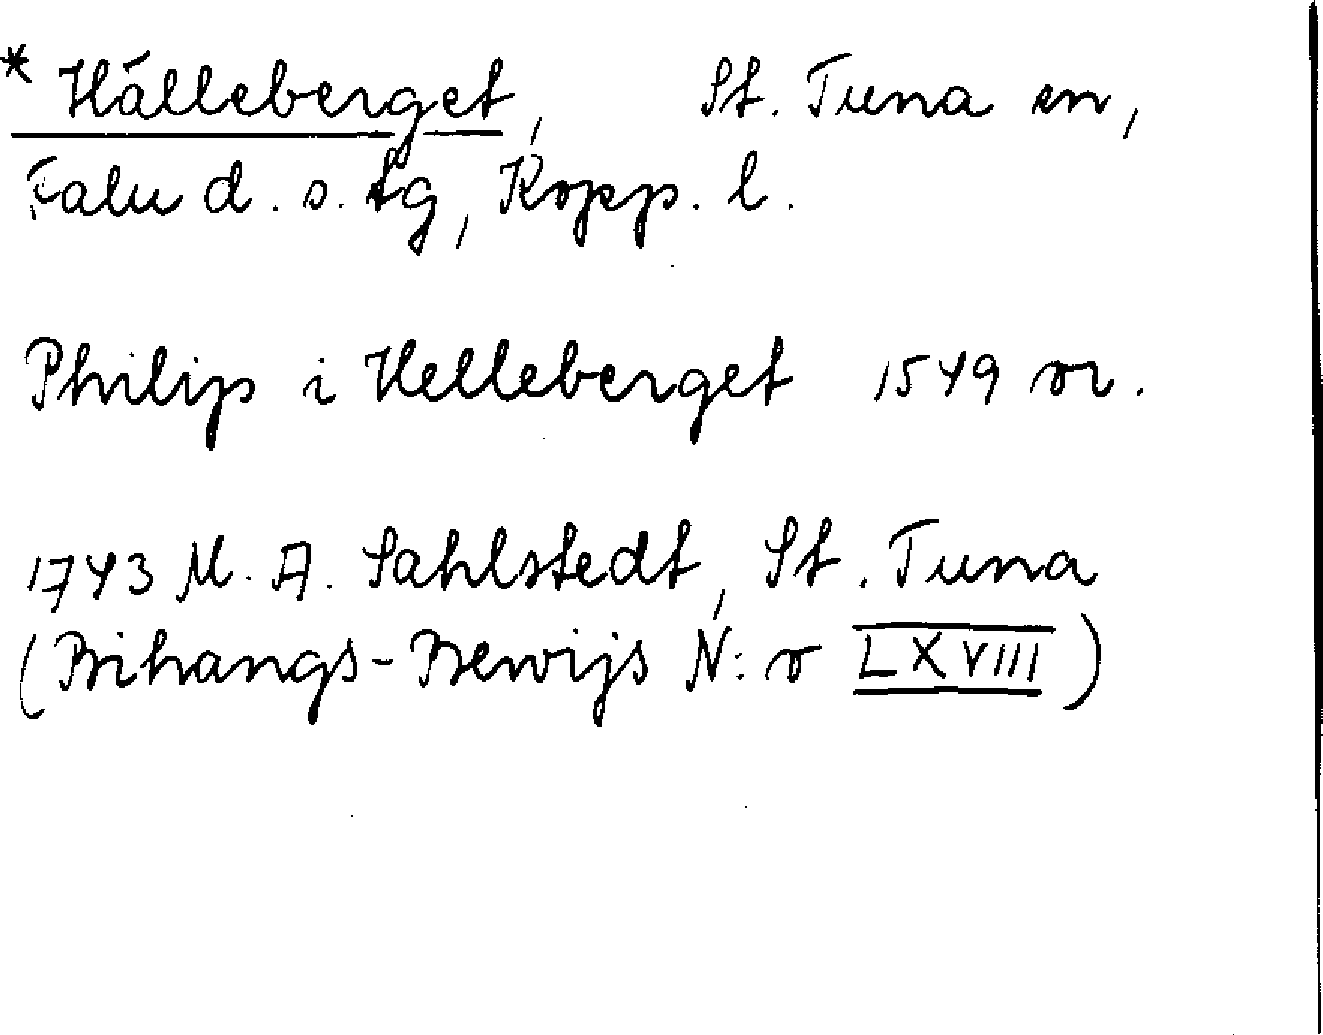 * Hälleberget, St. Tuna sn,
Falu d. s. tg, Kopp. l.
Philip i Helleberget 1549 or.
1743 M. A. Sahlstedt, St. Tuna
(Bihangs-Bewijs N:o LXVIII)